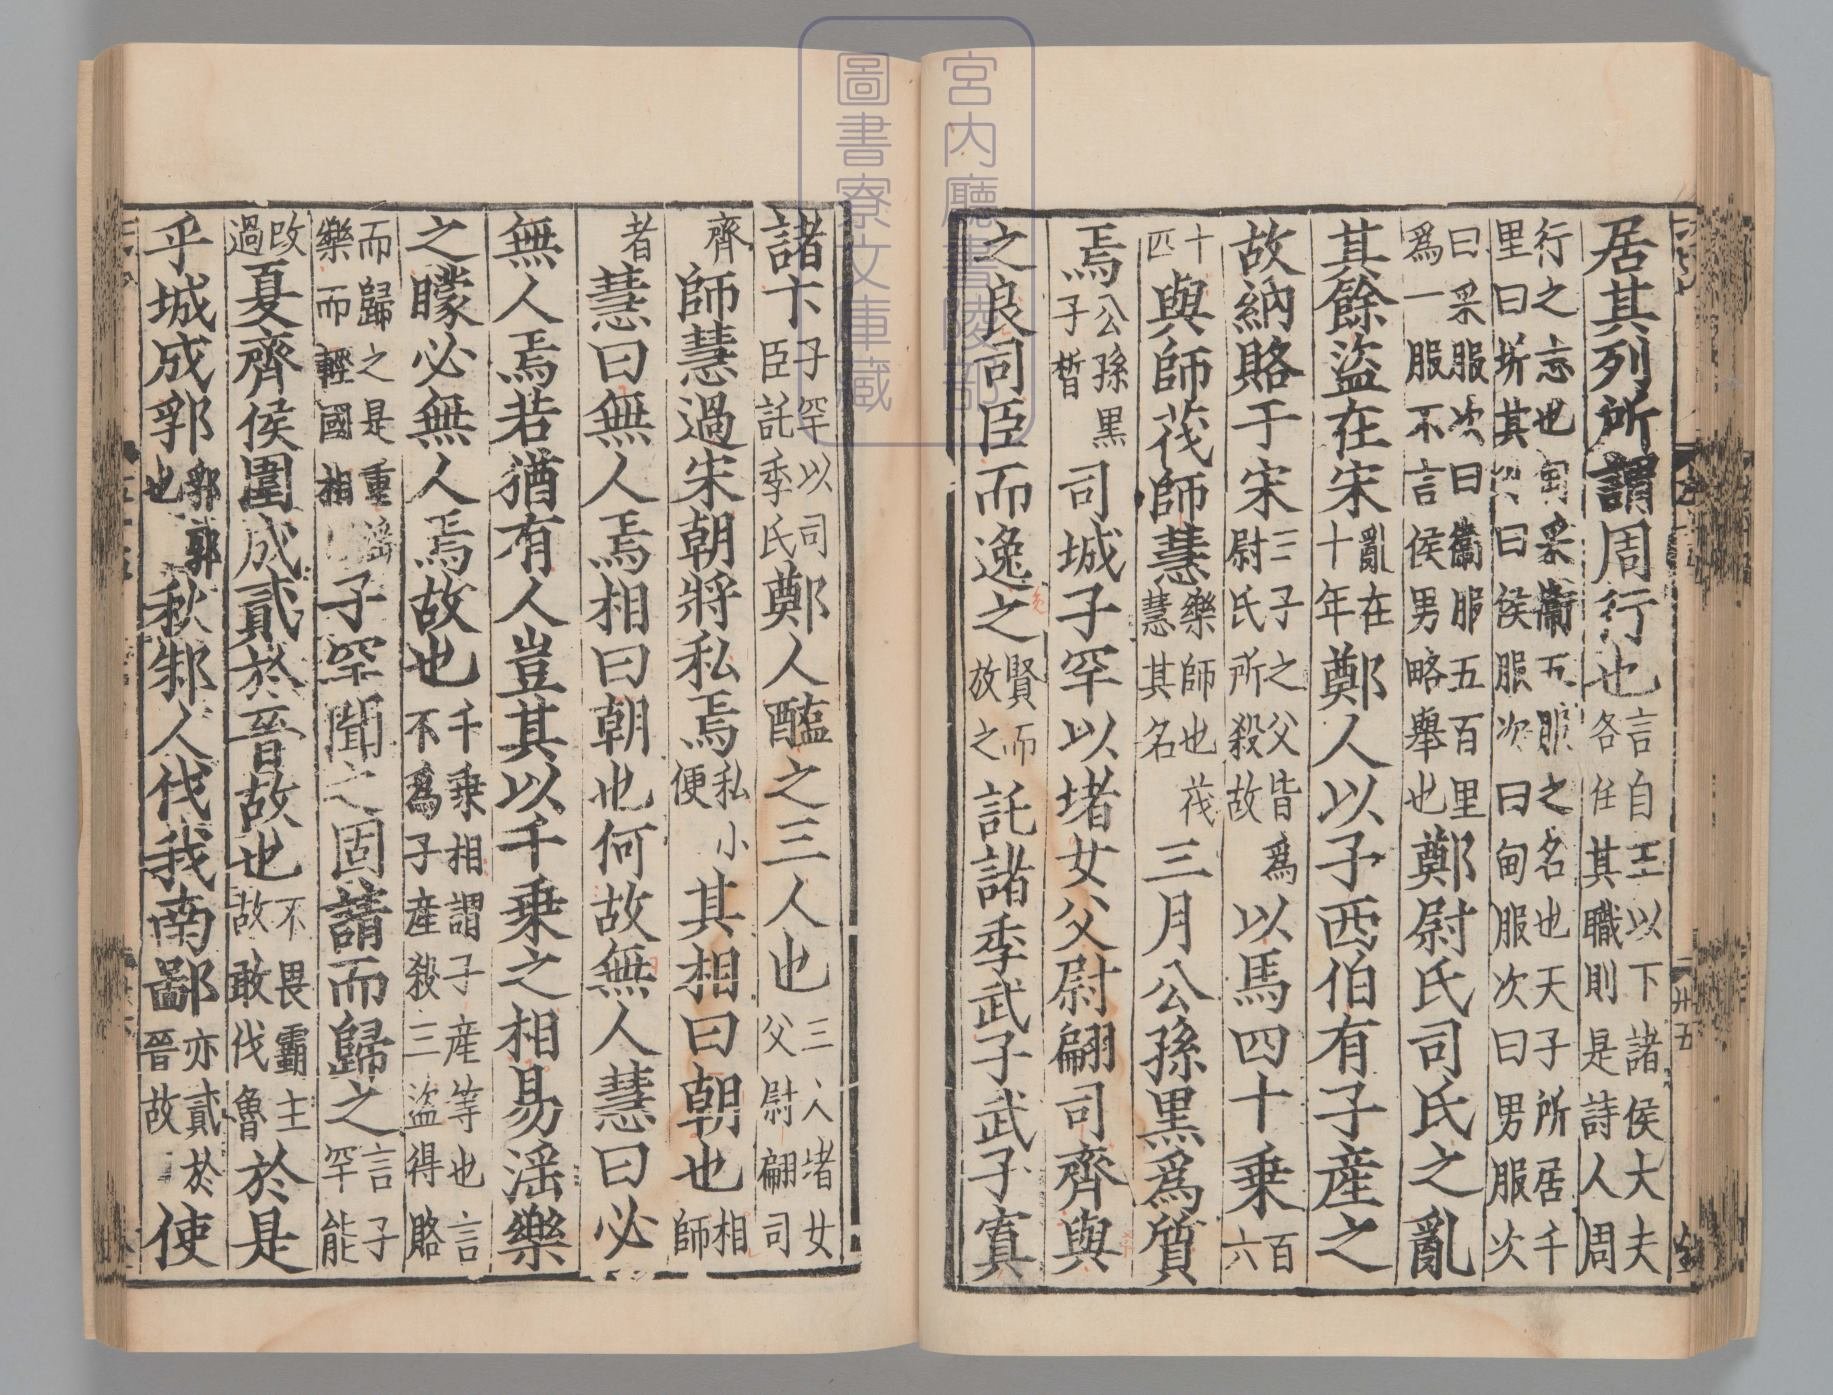 居其列所謂周行也言自王以下諸侯大夫各任其職則是詩人周
行之志也甸采衛五服之名也天子所居千里曰圻其曰侯服次曰甸服次曰男服次
曰采服次曰衞服五百里爲一服不言侯男略舉也鄭尉氏司氏之亂
其餘盜在宋亂在十年鄭人以子西伯有子産之
故納賂于宋三子之父皆爲尉氏所殺故以馬四十乗百六
十匹與師茷師慧樂師也茷慧其名三月公孫黑爲質
焉公孫黑子晳司城子罕以堵女父尉翩司齊與
之良司臣而逸之賢而放之託諸季武子武子寘
諸卞子罕以司臣託季氏鄭人醢之三人也三人堵女父尉翩司
齊師慧過宋朝將私焉私小便其相曰朝也相師
者慧曰無人焉相曰朝也何故無人慧曰必
無人焉若猶有人豈其以千乗之相易滛樂
之矇必無人焉故也千乗相謂子産等也言不爲子産殺三盜得賂
而歸之是重滛樂而輕國相子罕聞之固請而歸之言子罕能
改過夏齊侯圍成貳於晉故也不畏霸主故敢伐魯於是
乎城成郛郛郭也秋邾人伐我南鄙亦貳於晉故使
卅五
宮内廳書陵部
圖書寮文庫藏